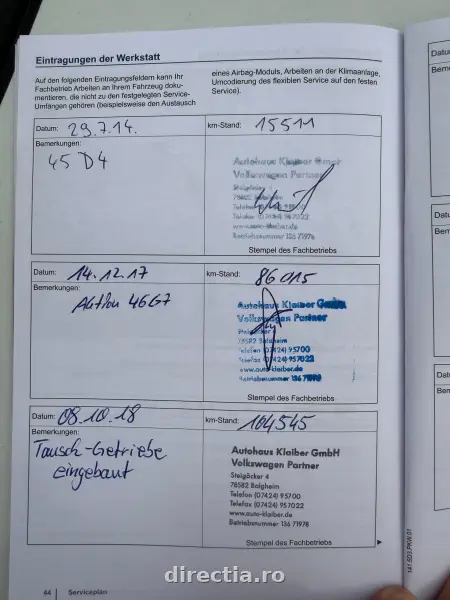 Eintragungen der Werkstatt
Auf den folgenden Eintragungsfeldern kann Ihr
Fachbetrieb Arbeiten an Ihrem Fahrzeug doku-
mentieren, die nicht zu den festgelegten Service-
Umfängen gehören (beispielsweise den Austausch
eines Airbag-Moduls, Arbeiten an der Klimaanlage,
Umcodierung des flexiblen Service auf den festen
Service).
Datum: 29.7.14. km-Stand: 15511
Bemerkungen:
45 D4
Autohaus Kloiber GmbH
Volkswagen Partner
Steigäcker 4
78582 Balgheim
Telefon (07424) 95700
Telefax (07424) 957022
www.auto-kloiber.de
Betriebsnummer 136 71978
Stempel des Fachbetriebs
Datum: 14.12.17 km-Stand: 86015
Bemerkungen:
Aktion 46G7
Autohaus Kloiber GmbH
Volkswagen Partner
Steigäcker 4
78582 Balgheim
Telefon (07424) 95700
Telefax (07424) 957022
www.auto-kloiber.de
Betriebsnummer 136 71978
Stempel des Fachbetriebs
Datum: 08.10.18 km-Stand: 104545
Bemerkungen:
Tausch-Getriebe
eingebaut
Autohaus Kloiber GmbH
Volkswagen Partner
Steigäcker 4
78582 Balgheim
Telefon (07424) 95700
Telefax (07424) 957022
www.auto-kloiber.de
Betriebsnummer 136 71978
Stempel des Fachbetriebs
44 Serviceplan
directia.ro